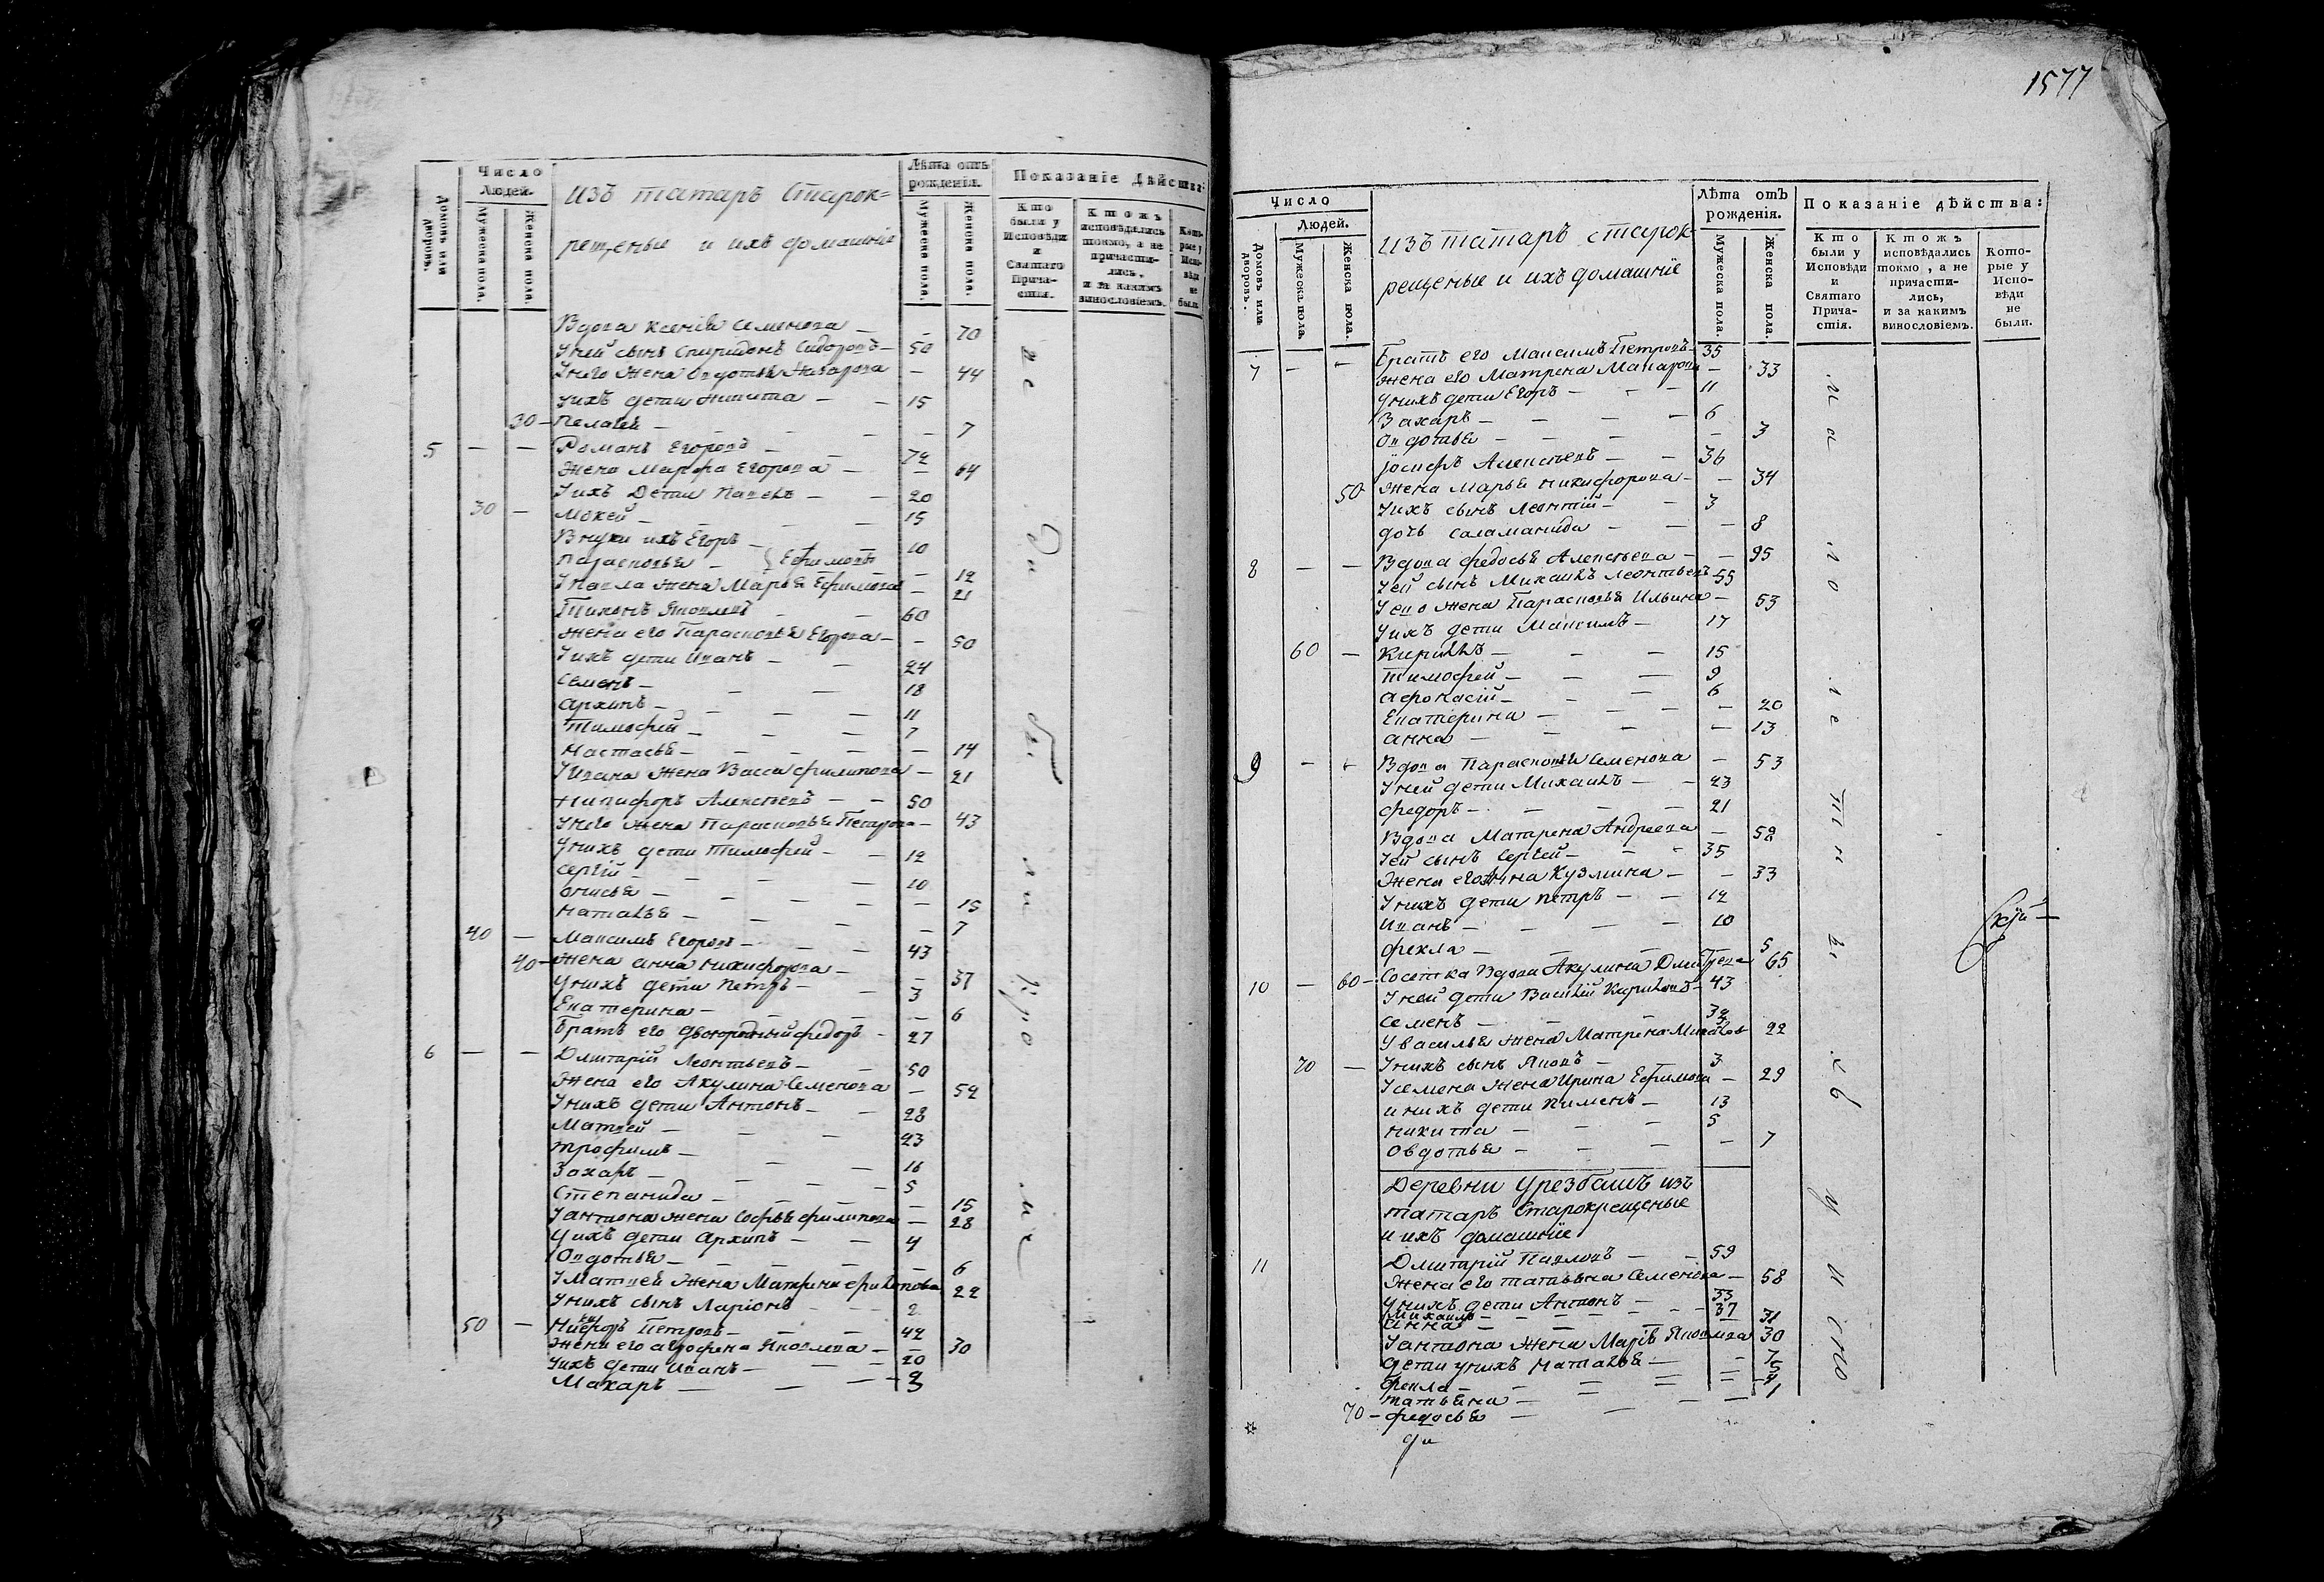 Число Людей.
Домовъ или дворовъ.
Мужеска пола.
Женска пола.
Изъ татаръ Старок=
рещеные и ихъ домашніе
Лѣта отъ рожденія.
Мужеска пола.
Женска пола.
Показаніе Дѣйства:
Кто были у Исповѣди и Святаго Прича-стія.
Ктожъ исповѣдались токмо, а не причасти-лись, и за какимъ винословіемъ.
Кото-рые у Испо-вѣди не были.
Вдова Ксенія Семенова — — 70
У ней сынъ Спиридонъ Сидоровъ — 50
У него жена Овдотья Макарова — 44
У ихъ дети Никита — — 15
30 — Пелагея — — — — 7
5 — — Романъ Егоровъ — — 72
Жена Марфа Егорова — — 64
У ихъ Дети Павелъ — — 20
30 — Мокей — — — 15
Внуки ихъ Егоръ — 10
Парасковья — } Ефимовы — 12
У Павла жена Марья Ефимова — 21
Тихонъ Яковлевъ — — 60
Жена его Парасковья Егорова — — 50
У ихъ дети Иванъ — — 24
Семенъ — — — 18
Архипъ — — — — 11
Тимофей — — — 7
Настасья — — — — — 14
У Ивана жена Васса Филипова — 21
Никифоръ Алексеевъ — — 50
У него жена Парасковья Петрова — 43
У нихъ дети Тимофей — — 12
Сергій — — — — 10
Онисья — — — — — 15
Наталья — — — — — 7
40 — Максимъ Егоровъ — — — 43
40 — Жена Анна Никифорова — — 37
У нихъ дети Петръ — — 3
Екатерина — — — — 6
Братъ его двоюродный Федоръ — 27
6 — — Дмитрій Леонтьевъ — — 50
Жена его Акулина Семенова — 52
У нихъ дети Антонъ — — 28
Матвей — — — 23
Трофимъ — — — 16
Захаръ — — — — 5
Степанида — — — — 15
У Антона жена Софья Филипова — 28
У ихъ дети Архипъ — — 4
Овдотья — — — — — 6
У Матвея Жена Матрена Филипова 22
У нихъ сынъ Ларіонъ — — 2
50 — Никифоръ Петровъ — — 42
Жена его Агрофена Яковлева — — 30
У ихъ дети Иванъ — — — 20
Макаръ — — — — 3
1577
Число
Людей.
Домовъ или дворовъ.
Мужеска пола.
Женска пола.
Изъ татаръ старок
рещеные и ихъ домашніе
Лѣта отъ рожденія.
Мужеска пола.
Женска пола.
Показаніе дѣйства:
Кто были у Исповѣди и Святаго Прича-стія.
Ктожъ исповѣдались токмо, а не причасти-лись, и за какимъ винословіемъ.
Кото-рые у Испо-вѣди не были.
7 — — Братъ его Максимъ Петровъ — 35
Жена его Матрена Макарова — 33
У нихъ дети Егоръ — — — 11
Захаръ — — — — 6
Овдотья — — — — 3
Іосифъ Алексеевъ — — 36
50 Жена Марья Никифорова — — 34
У ихъ сынъ Леонтій — — 3
дочь Саламанида — — — 8
8 — — Вдова Федосья Алексеева — — 95
У ей сынъ Михаилъ Леонтьевъ 55
У ево жена Парасковья Ильина — 53
У ихъ дети Максимъ — 17
60 — Кирилъ — — — 15
Тимофей — — — 9
Афонасій — — — 6
Екатерина — — — — 20
Анна — — — — — 13
9 — — Вдова Парасковья Семенова — 53
У ней дети Михаилъ — — 23
Федоръ — — — — 21
Вдова Матрена Андреева — 52
У ей сынъ Сергей — — — 35
Жена его Анна Кузмина — — 33
У нихъ дети Петръ — — 12
Иванъ — — — — 10
Фекла — — — — 5
10 — 60 — Сосетка Вдова Акулина Дмитрева 65
У ней дети Василій Кириловъ — 43
Семенъ — — — 32
У Василья жена Матрена Михайлова 22
70 — У нихъ сынъ Яковъ — 3
У Семена жена Ирина Ефимова — 29
У нихъ дети Пименъ — 13
Никита — — — 5
Овдотья — — — — 7
Деревни Урезбашъ изъ
татаръ Старокрещеные
и ихъ домашніе
11 Дмитрій Павловъ — — 59
Жена его Татьяна Семенова — 58
У нихъ дети Антонъ — 33
Михаилъ — — — — 37
Анна — — — 31
У Антона жена Марія Яковлева 30
дети у нихъ Наталья — — 7
Фекла — — — — 5
Татьяна — — — — 4
70 — Федосья — — — 1